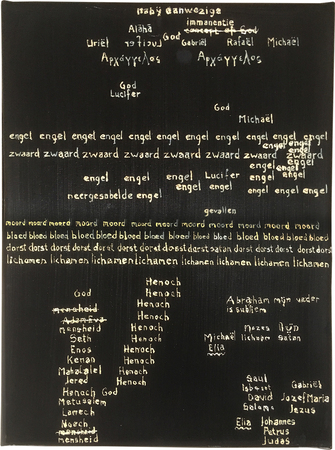 nabij aanwezige
immanentie
Alaha concept of God
God
Uriël Lucifer Gabriël Rafaël Michaël
Αρχάγγελος Αρχάγγελος
God
Lucifer
God
Michaël
engel engel engel engel engel engel engel engel engel
engel
zwaard zwaard zwaard zwaard zwaard zwaard zwaard zwaard
engel
engel engel engel Lucifer engel engel
engel engel
neergesabelde engel engel engel engel
gevallen
moord moord moord moord moord moord moord moord moord moord moord
bloed bloed bloed bloed bloed bloed bloed bloed bloed bloed bloed bloed
dorst dorst dorst dorst dorst dorst dorst satan dorst dorst dorst dorst
lichamen lichamen lichamen lichamen lichamen lichamen lichamen lichamen
Henoch
God Henoch
Henoch
mensheid Henoch
Adam Eva Henoch
mensheid Henoch
Seth Henoch
Enos Henoch
Kenan Henoch
Mahalalel Henoch
Jered Henoch
Henoch God
Matusalem
Lamech
Noach
mensheid
mensheid
Abraham mijn vader
is subliem
Mozes
Michaël lichaam satan
Elia
Saul
Gabriël
David Jozef Maria
Salomo Jezus
Elia Johannes
Petrus
Judas